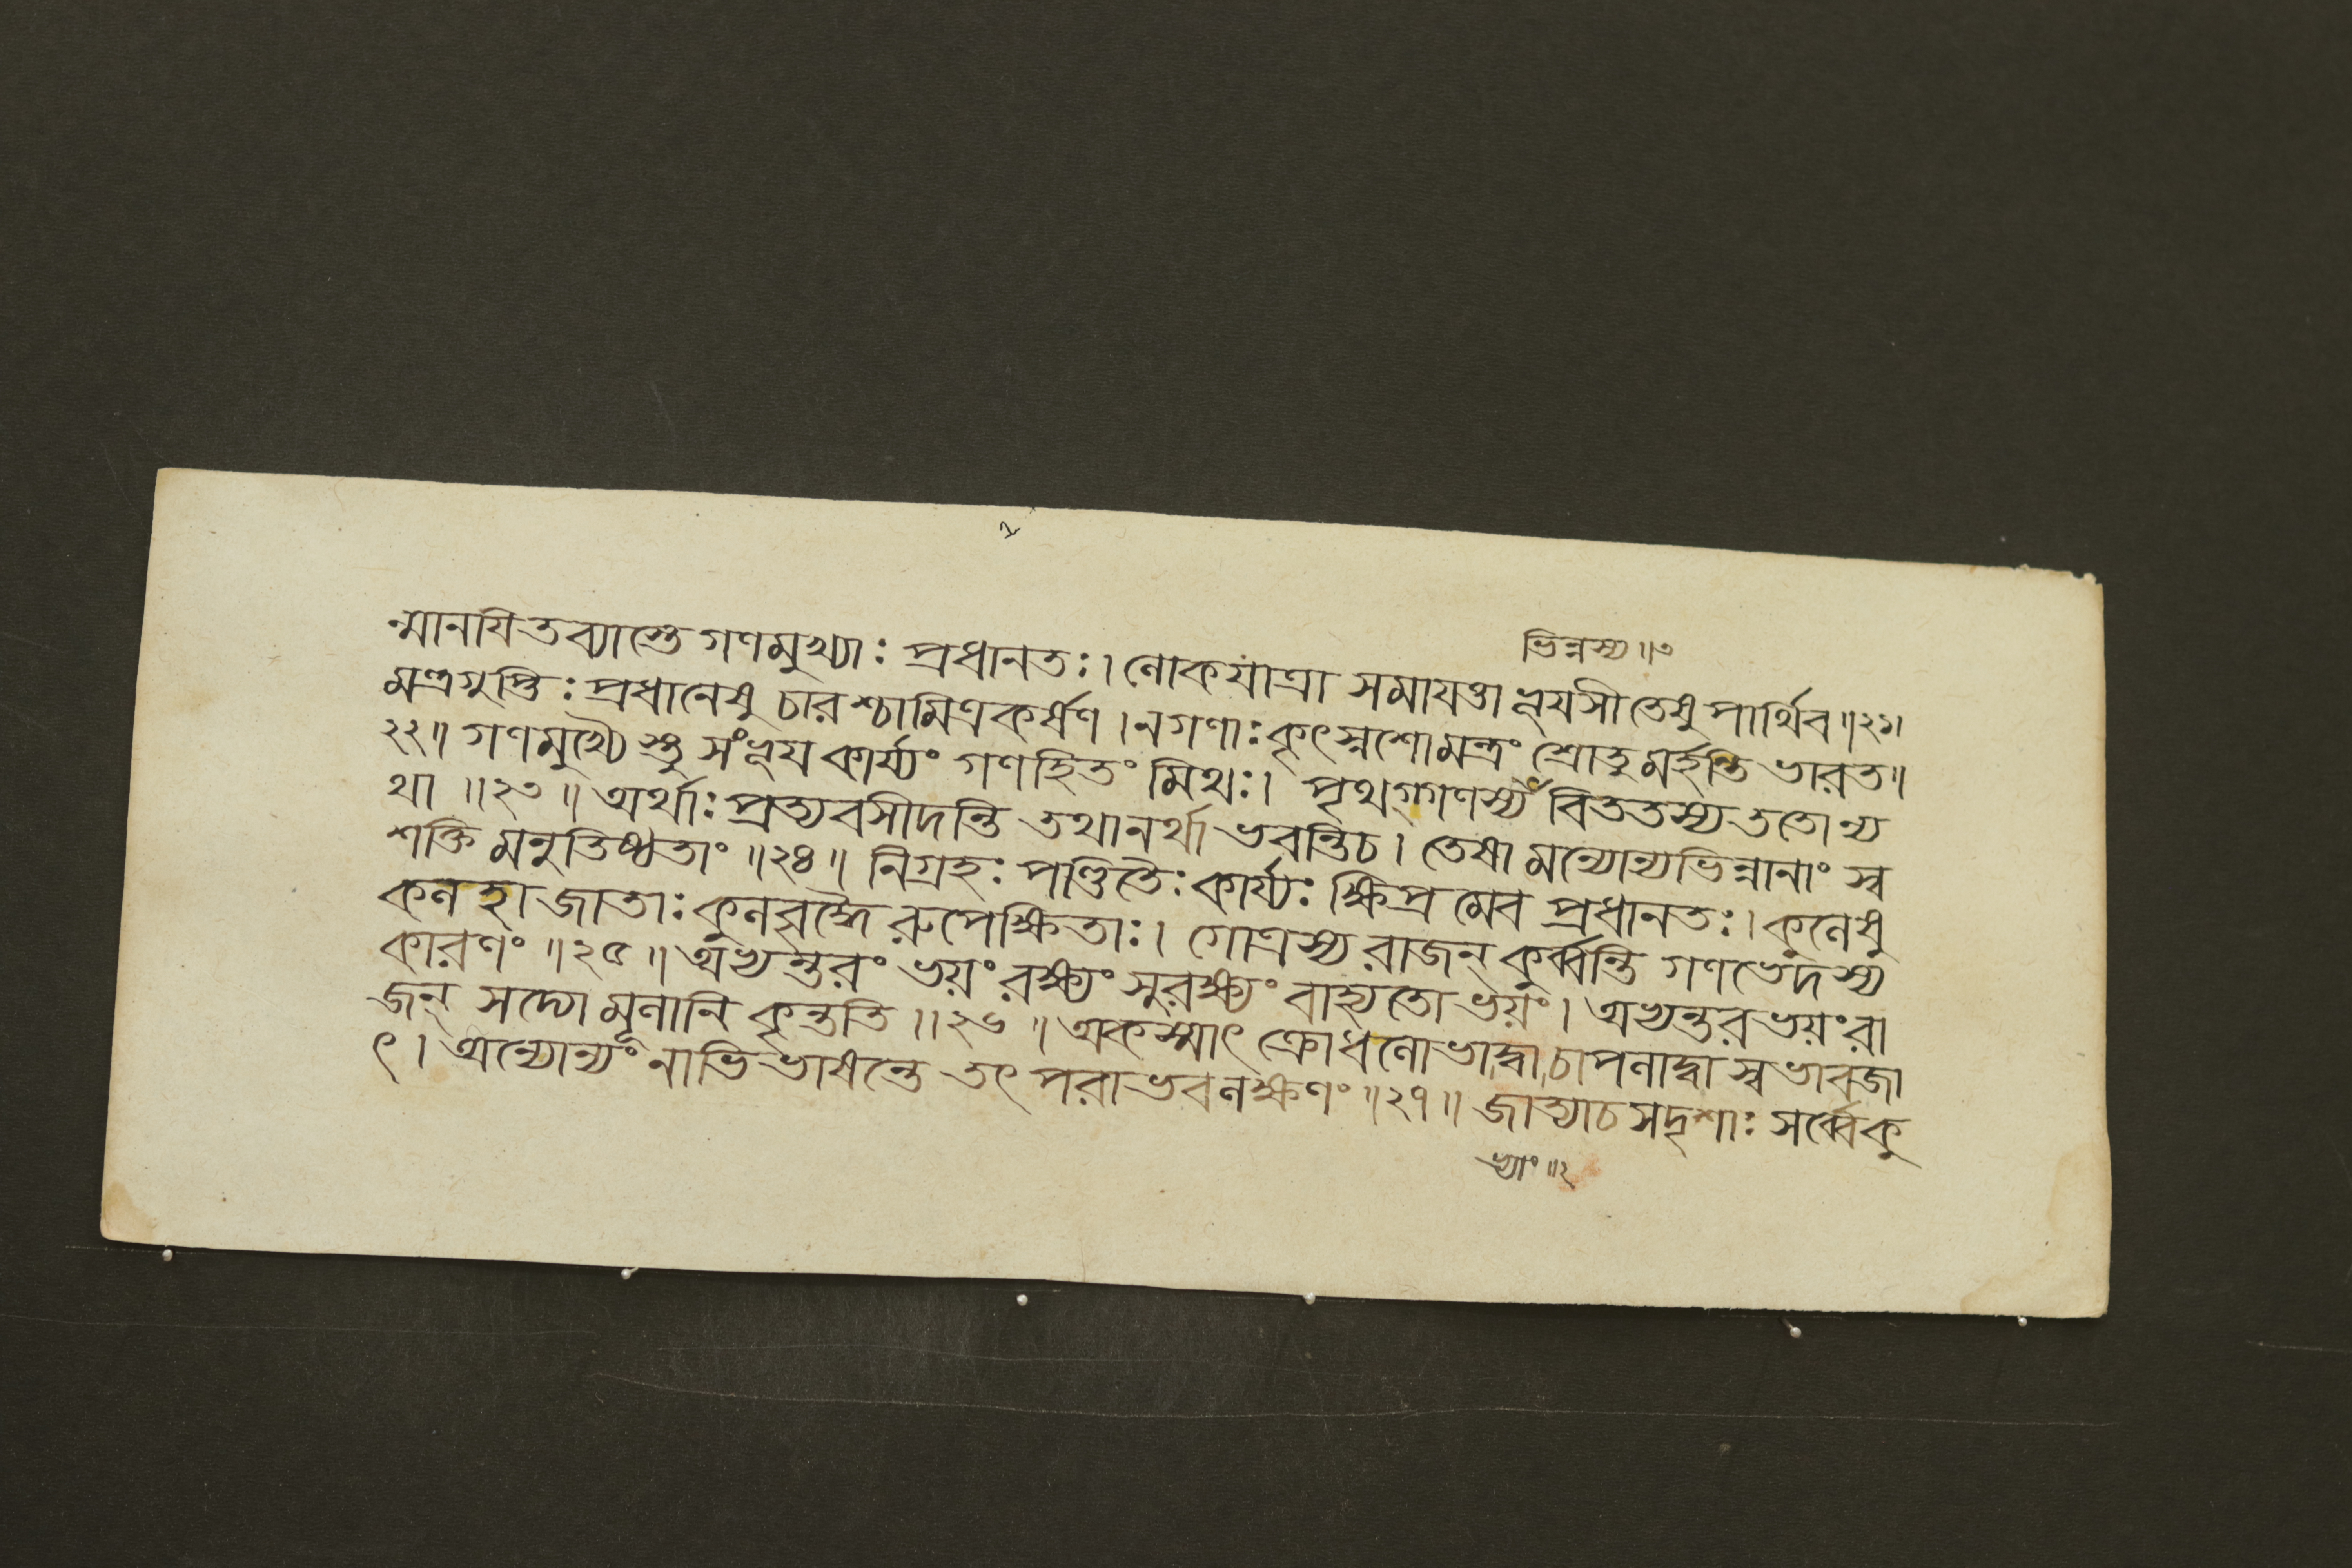 ভিন্নস্য॥৩
ন্মানযিতব্যাস্তে গণমুখ্যাঃ প্রধানতঃ। লোকযাত্রা সমাযত্তা ভূযসী তেষু পার্থিব॥২১।
মন্ত্রগুপ্তিঃ প্রধানেষু চারশ্চামিত্রকর্ষণ। ন গণাঃ কৃৎস্নশো মন্ত্রং শ্রোতুমর্হন্তি ভারত॥
২২॥ গণমুখ্যৈস্তু সংভূয কার্য্যং গণহিতং মিথঃ। পৃথগ্গণস্য বিততস্য ততোন্য
থা॥২৩॥ অর্থাঃ প্রত্যবসীদন্তি তথানর্থা ভবন্তি চ। তেষামন্যোন্যভিন্নানাং স্ব
শক্তিমনুতিষ্ঠতাং॥২৪॥ নিগ্রহঃ পণ্ডিতৈঃ কার্য্যঃ ক্ষিপ্রমেব প্রধানতঃ। কুলেষু
কলহা জাতাঃ কুলবৃদ্ধৈরুপেক্ষিতাঃ। গোত্রস্য রাজন্ কুর্ব্বন্তি গণভেদস্য
কারণং॥২৫॥ অভ্যন্তরং ভয়ং রক্ষ্যং সুরক্ষ্যং বাহ্যতো ভয়ং। অভ্যন্তরভয়ং রা
জন্ সদ্যো মূলানি কৃন্ততি॥২৬॥ অকস্মাৎ ক্রোধলোভাদ্বা চাপলাদ্বা স্বভাবজা
ৎ। অন্যোন্যং নাভিভাষন্তে তৎ পরাভবলক্ষণং॥২৭॥ জাত্যা চ সদৃশাঃ সর্ব্বে কু
ভ্যাং॥২